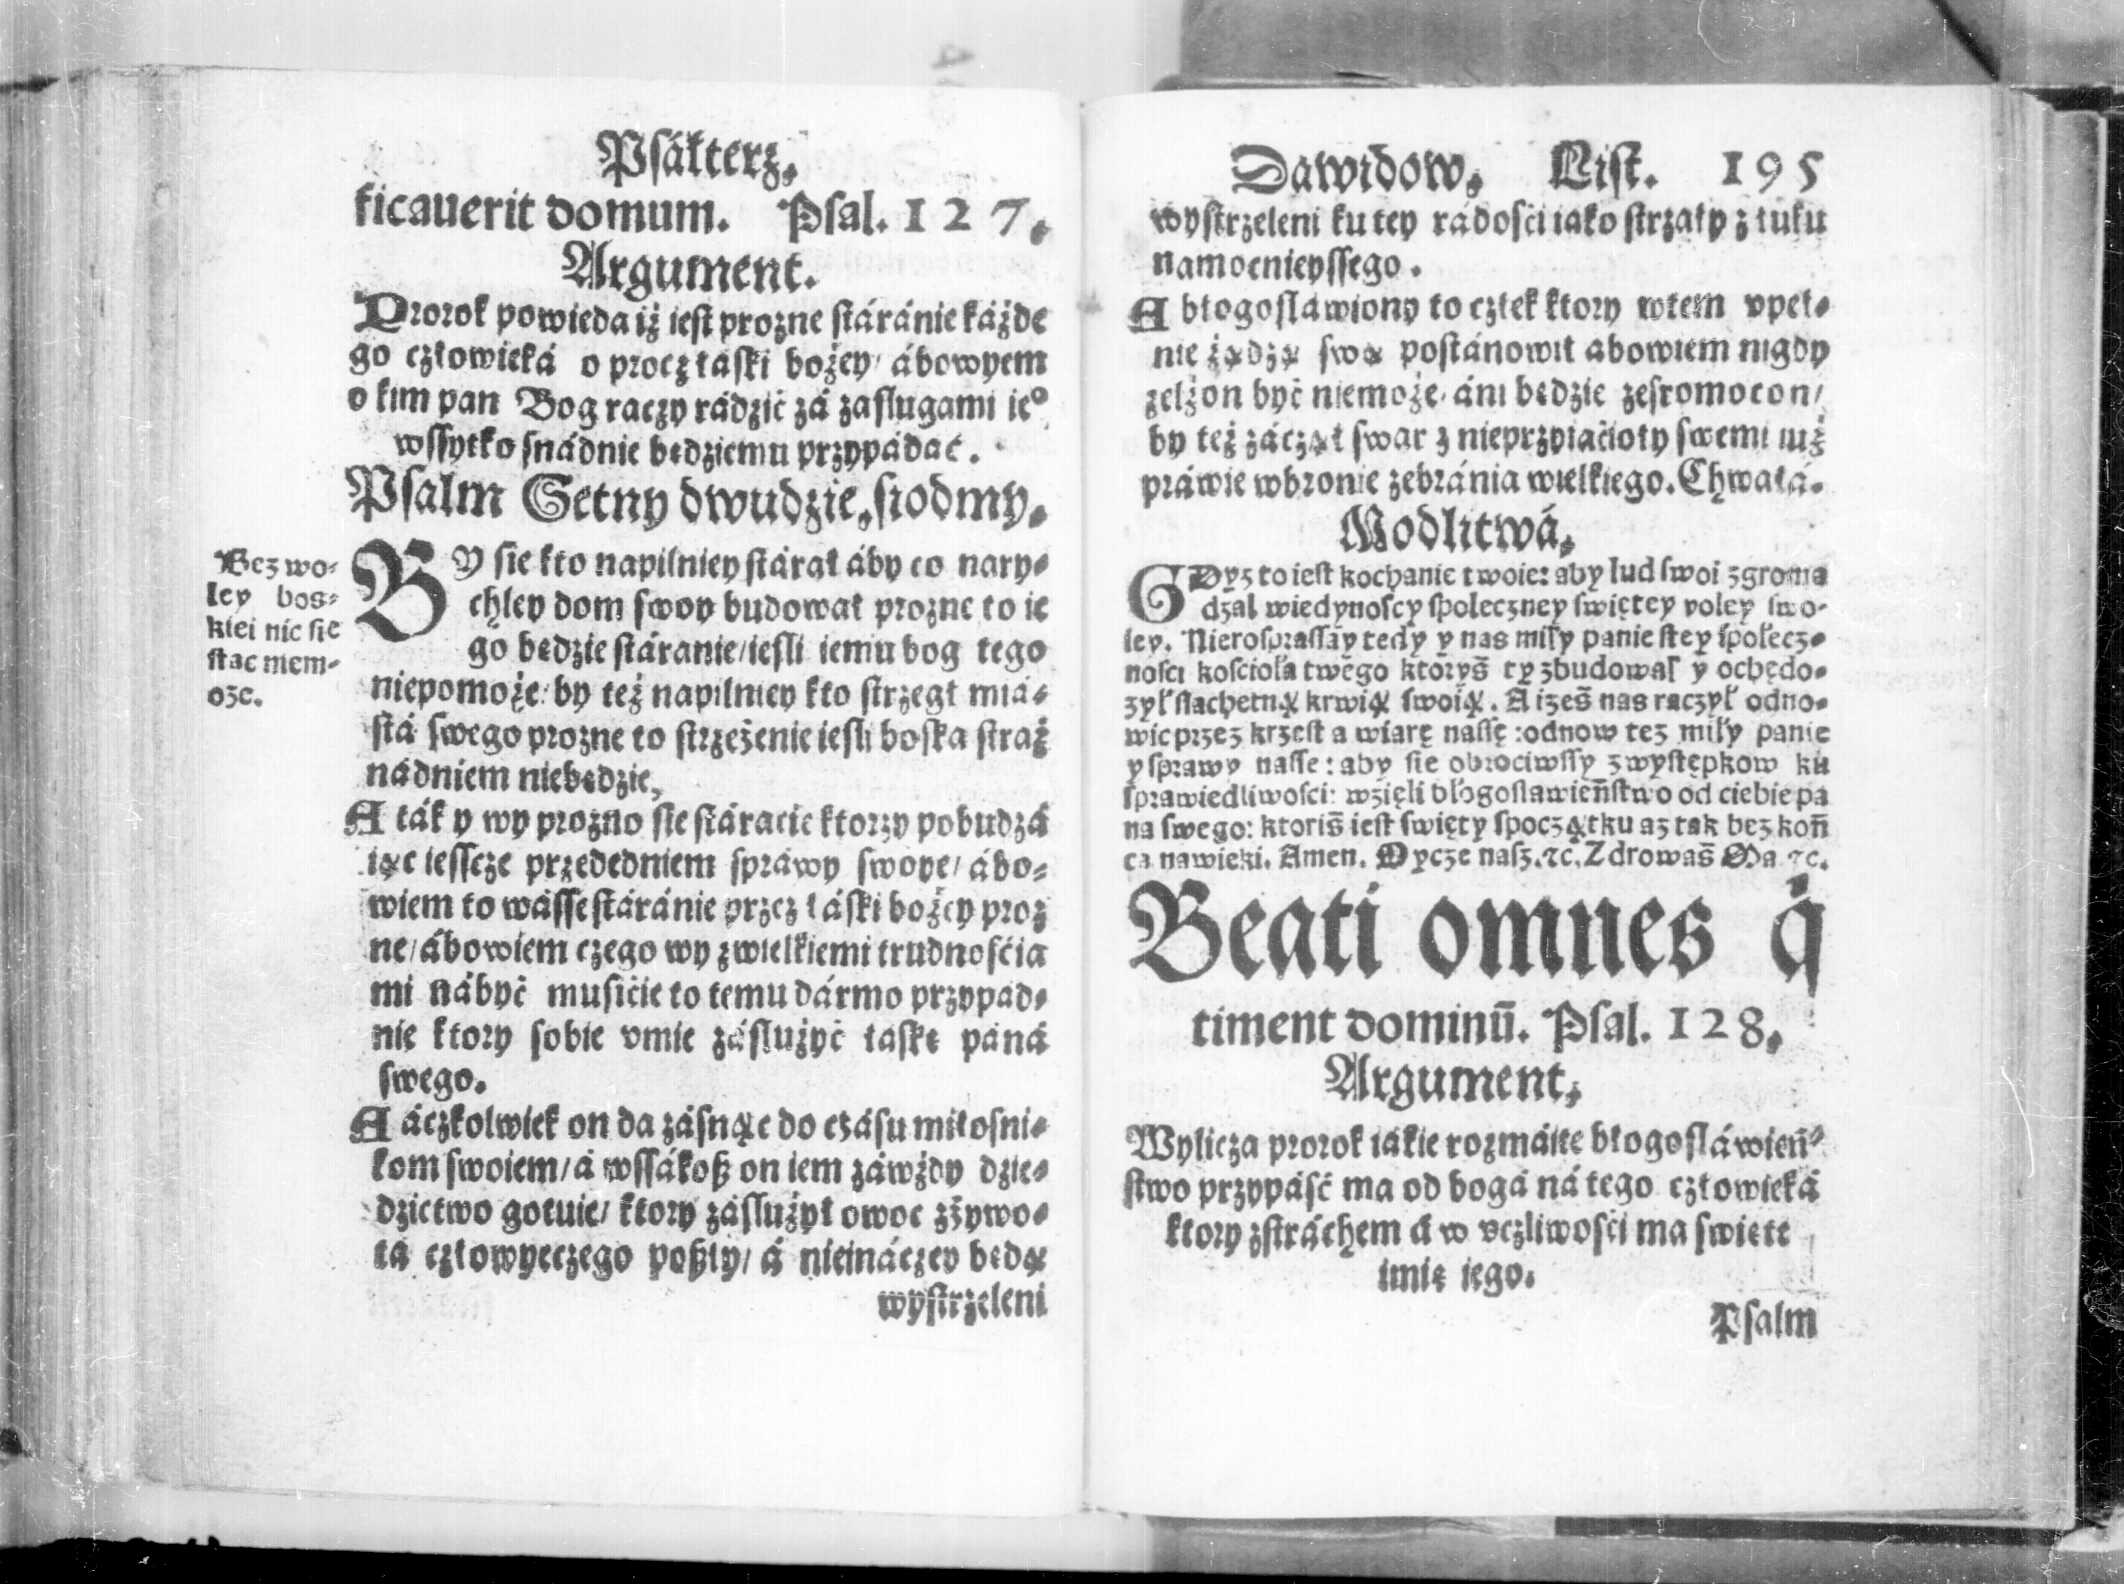 Psałterz.
ficauerit domum. Psal. 127.
Argument.
Prorok powieda iż iest prozne stáránie káżde
go człowieká o procz łaski bożey/ ábowyem
o kim pan Bog raczy rádzić zá zaslugami ieº
wssytko snádnie będziemu przypádać.
Psalm Setny dwudzie. siodmy.
Bez wo-
ley bos-
kiei nic sie
stac niem-
oze.
BY sie kto napilniey stárał áby co nary-
chley dom swoy budował prozne to ie
go będzie stáranie/iesli iemu bog tego
niepomoże/ by też napilniey kto strzegł miá-
stá swego prozne to strzeżenie iesli boska straż
nádniem niebędzie,
A ták y wy prozno sie stáracie ktorzy pobudzá
iąc iesscze przededniem spráwy swoye/ ábo-
wiem to wásse stáránie przez łáski bożey proz
ne/ábowiem czego wy z wielkiemi trudnośćia
mi nábyć musićie to temu dármo przypad-
nie ktory sobie vmie zásłużyć łaskę páná
swego.
A áczkolwiek on da zásnąc do czásu miłosni-
kom swoiem/á wssákoß on iem záwżdy dzie-
dzictwo gotuie/ ktory zásłużył owoc zżywo-
tá człowyeczego poßły/ á nieináczey będą
wystrzeleni
Dawidow. List. 195
wystrzeleni ku tey rádośći iako strzały z łuku
namocnieyssego.
A błogosláwiony to człek ktory wtem vpeł-
nie żądzą swą postánowił abowiem nigdy
zelżon być niemoże/ áni będzie zesromocon/
by też záczął swar z nieprzyiaćioły swemi iuż
práwie wbronie zebránia wielkiego. Chwałá.
Modlitwá.
GDyz to iest kochanie twoie: aby lud swoi zgroma
dzal wiedynoscy spoleczney swiętey voley swo-
ley. Nierosprassay tedy y nas miły panie stey społecz-
nosci kościoła twego ktoryś ty zbudował y ochędo-
zył slachetną krwią swoią. A iześ nas raczył odno-
wic przez krzest a wiarę nassę: odnow tez miły panie
y sprawy nasse: aby sie obrociwssy z występkow ku
sprawiedliwosci: wzięli błogoslawieństwo od ciebie pa
na swego: ktoriś iest swięty spoczątku az tak bez koń
ca nawieki. Amen. Oycze nasz. ⁊c. Zdrowaś Ma ⁊c.
Beati omnes q̇
timent dominū. Psal. 128.
Argument.
Wylicza prorok iákie rozmáite błogosláwień-
stwo przypáść ma od bogá ná tego człowieká
ktory zstráchem á w vczliwośći ma swięte
imię iego.
Psalm